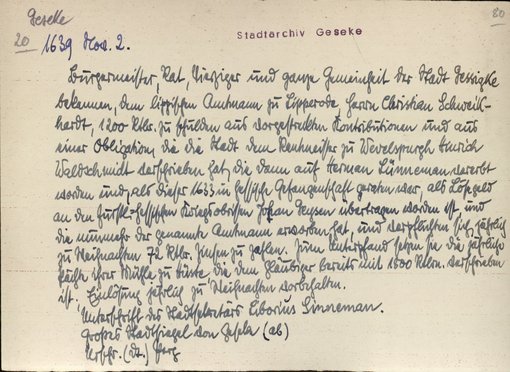 Geseke
80
20
1639 Nov. 2.
Stadtarchiv Geseke
Bürgermeister, Rat, Vierziger und ganze Gemeinheit der Stadt Gessigke
bekennen, dem lippischen Amtmann zu Lipperode, Herrn Christian Schweik-
hardt, 1200 Rtlr. zu schulden aus vorgestreckten Kontributionen und aus
einer Obligation, die die Stadt dem Rentmeister zu Wevelspurgh Henrich
Waldschmidt verschrieben hat, die dann auf Herman Lünneman vererbt
worden und, als dieser 1633 in hessische Gefangenschaft geraten war, als Lösegeld
an den fürstl. hessischen Kriegsobristen Johan Geysen übertragen worden ist, und
die nunmehr der genannte Amtmann erworben hat, und verpflichten sich, jährlich
zu Weihnachten 72 Rtlr. Zinsen zu zahlen. Zum Unterpfand setzen sie die jährliche
Pächte ihrer Mühle zu die dem Gläubiger bereits mit 1500 Rtlrn. verschrieben
ist. Einlösung jährlich zu Weihnachten vorbehalten.
Unterschrift des Stadtsekretärs Liborius Linneman.
Großes Stadtsiegel von Geseke (ab)
Urschr. (dt.) Perg